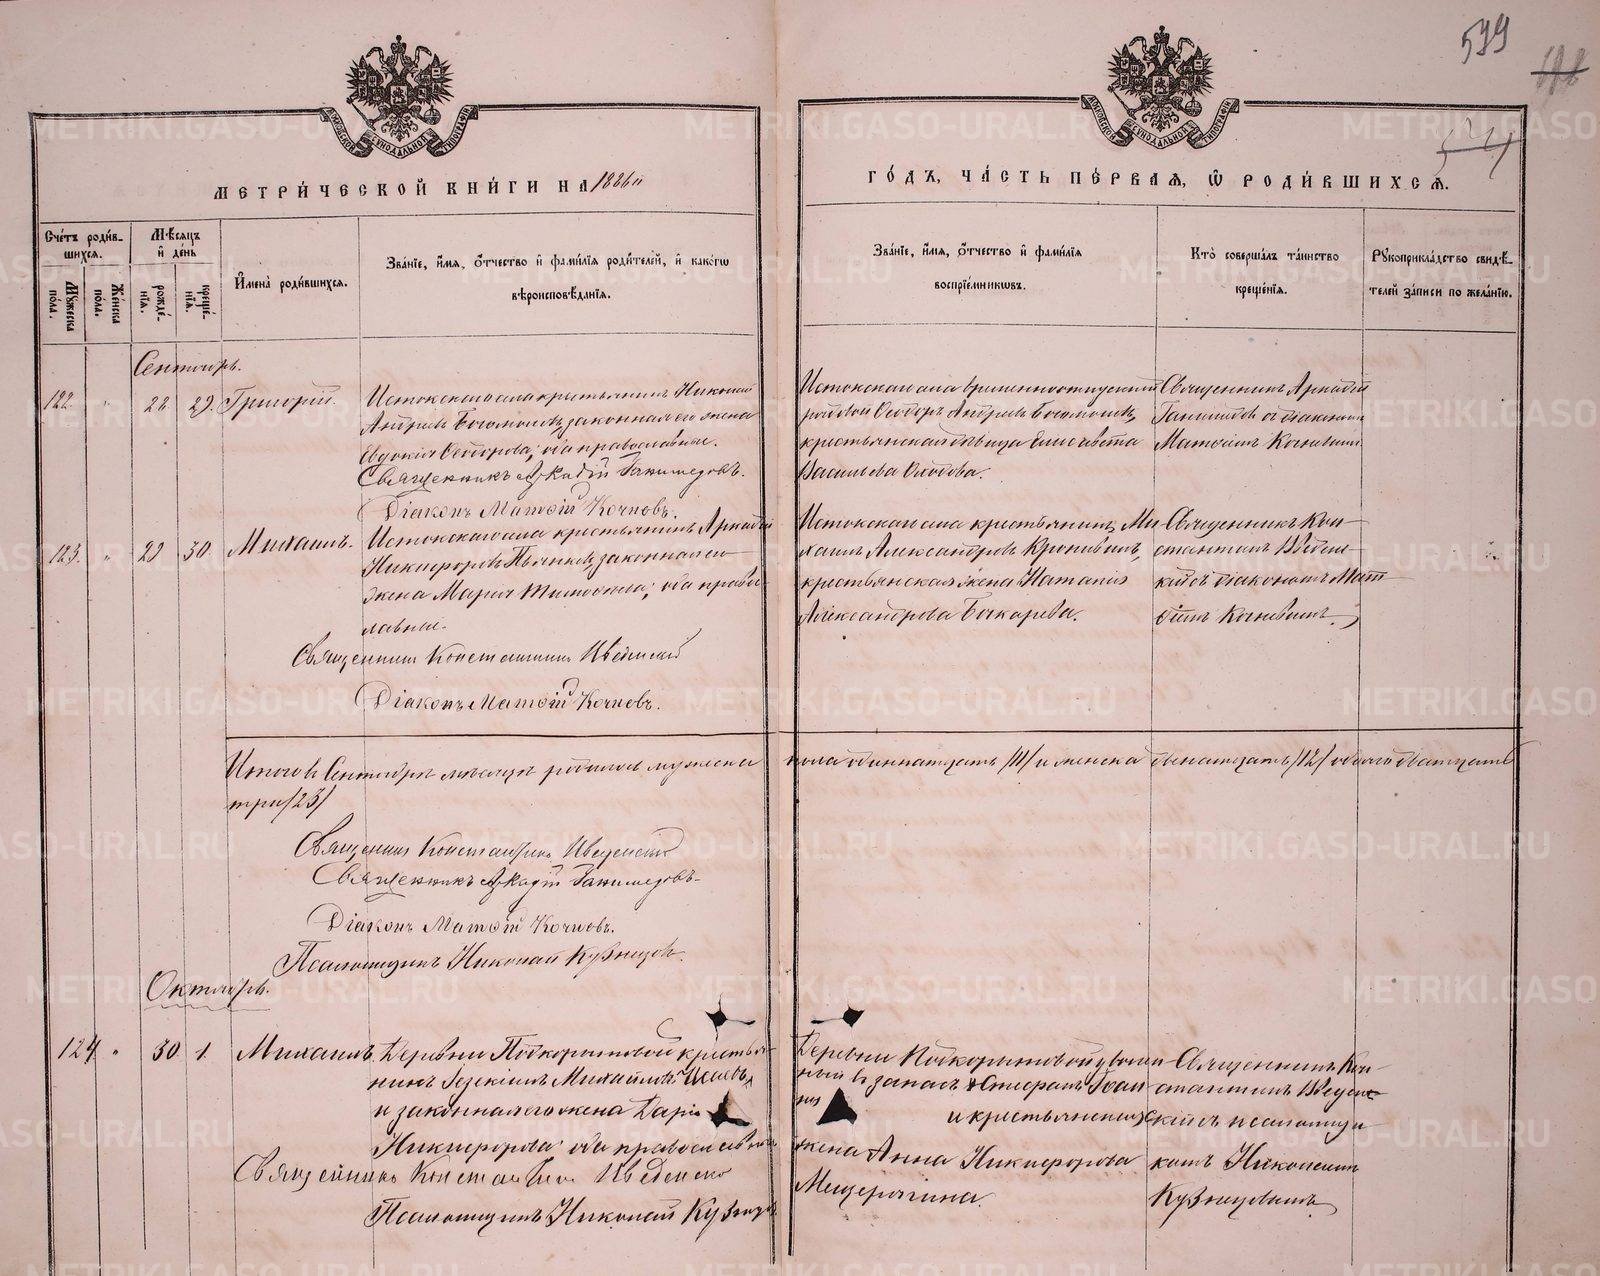 599
МЕТРИ́ЧЕСКОЙ КНИ́ГИ НА 1886й
ГО́ДЪ, ЧА́СТЬ ПЕ́РВАЯ, Ѽ РОДИ́ВШИХСЯ.
Сче́тъ роди́в-
шихся.
Му́жеска
по́ла.
Же́нска
по́ла.
Мѣ́сяцъ
и де́нь
рожде́-
нїя.
креще́-
нїя.
И҆мена̀ роди́вшихся.
Зва́нїе, и҆́мя, ѻ҆́тчество и҆ фами́лїя роди́телей, и҆ како́гѡ
вѣроисповѣ́данїя.
Зва́нїе, и҆́мя, ѻ҆́тчество и҆ фами́лїя
воспрїе́мникѡвъ.
Кто̀ соверша́лъ та́инство
креще́нїя.
Рꙋкоприкла́дство свидѣ́-
телей за́писи по жела́нїю.
Сентябрь.
122. " 28 29. Григорій.
Истокскаго села крестьянинъ Николай
Андреевъ Богомоловъ, законная его жена
Евдокія Ѳеодорова; оба православные.
Священникъ Аркадій Ганимедовъ.
Діаконъ Матѳій Кочневъ.
Истокскаго села временноотпускной
рядовой Ѳеодоръ Андреевъ Богомоловъ,
крестьянская дѣвица Елисавета
Васильева
Священникъ Аркадій
Ганимедовъ съ діакономъ
Матѳіемъ Кочневымъ.
123. " 29 30. Михаилъ.
Истокскаго села крестьянинъ Аркадій
Никифоровъ Пьянковъ, законная его
жена Марія Тимоѳеева; оба право-
славные.
Священникъ Константинъ Введенскій
Діаконъ Матѳій Кочневъ.
Истокскаго села крестьянинъ Ми-
хаилъ Александровъ
крестьянская жена Наталія
Александрова Бочкарева.
Священникъ Кон-
стантинъ Введен-
скій съ діакономъ Мат-
ѳіемъ Кочневымъ.
Итого въ Сентябрѣ мѣсяцѣ родилось мужеска пола одиннадцать /11/ и женска двенадцать /12/ обоего двадцать
три /23/
Священникъ Константинъ Введенскій
Священникъ Аркадій Ганимедовъ
Діаконъ Матѳій Кочневъ.
Псаломщикъ Николай Кузнецовъ.
Октябрь.
124. " 30 1. Михаилъ.
Деревни Подкорытовой крестья-
нинъ Іезекіилъ Михайловъ
и законная его жена Дарія
Никифорова; оба православные
Священникъ Константинъ Введенскій
Псаломщикъ Николай Кузнецовъ
Деревни Подкорытовой уволен-
ный въ запасъ Стефанъ Іоан-
и крестьянская
жена Анна Никифорова
Мещерягина.
Священникъ Кон-
стантинъ Введен-
скій съ псаломщи-
комъ Николаемъ
Кузнецовымъ
METRIKI.GASO-URAL.RU